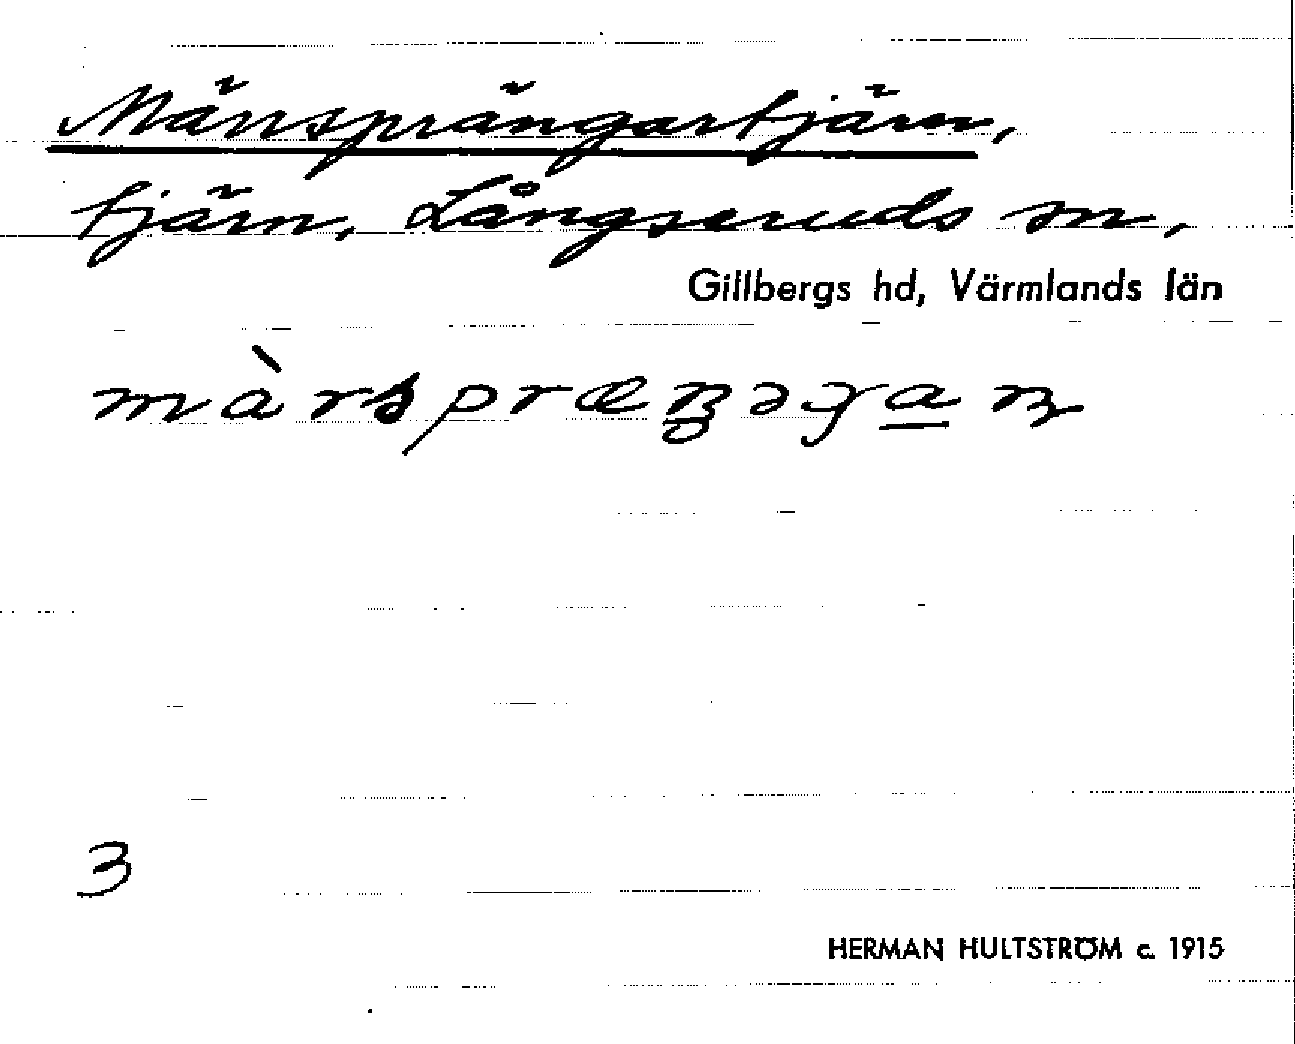 Märrsprängartjärn,
tjärn, Långseruds sn,
Gillbergs hd, Värmlands län
3
HERMAN HULTSTRÖM c. 1915